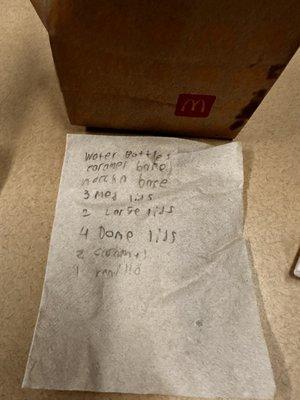 Water Bottles
caramel base
mocha base
3 Med lids
2 Large lids
4 Dome lids
2 caramel
1 vanilla